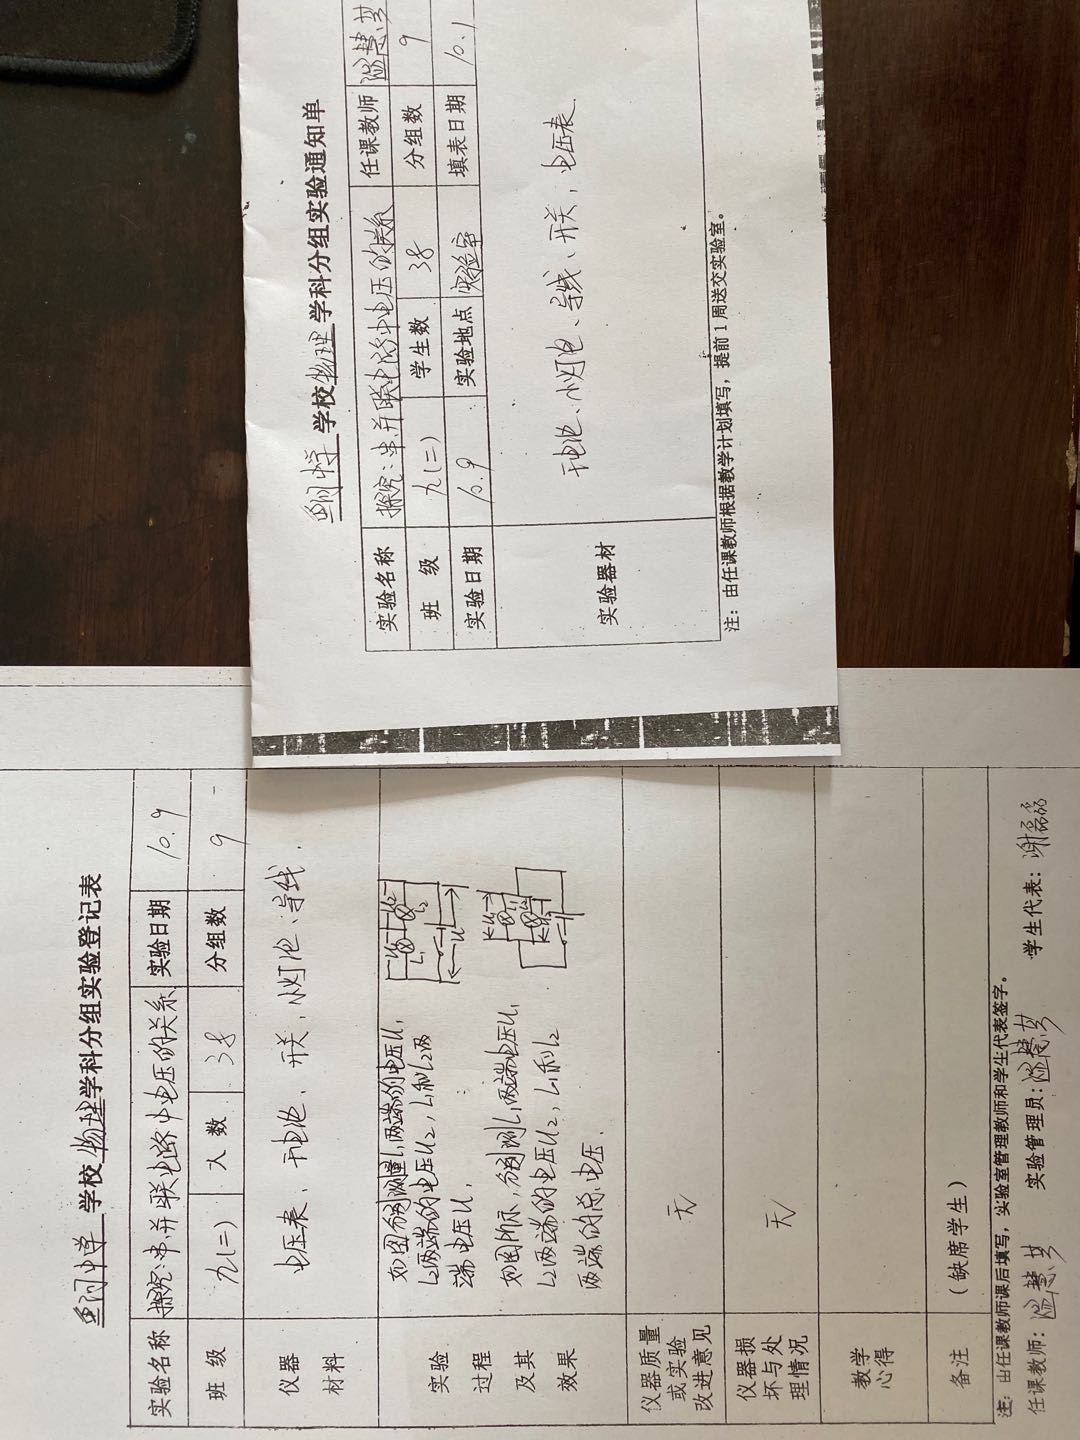 学校物理学科分组实验通知单
实验名称 探究:串并联电路中电压的关系 任课教师 温慧芬
班 级 九(二) 学生数 38 分组数 9
实验日期 10.9 实验地点 实验室 填表日期 10.1
实验器材 干电池、小灯泡、导线、开关,电压表
注:由任课教师根据教学计划填写,提前1周送交实验室。
学校物理学科分组实验登记表
实验名称 探究:串并联电路中电压的关系 实验日期 10.9
班 级 九(二) 人 数 38 分组数 9
仪器
材料
电压表、干电池、开关,小灯泡、导线.
实验
过程
及其
效果
如图分别测量L1两端的电压U1
L2两端的电压U2,L1和L2两
端电压U,
如图所示,分别测L1两端电压U1
L2两端的电压U2,L1和L2
两端的总电压.
仪器质量
或实验
改进意见
无
仪器损
坏与处
理情况
无
教学
心得
备注 (缺席学生)
注:由任课教师课后填写,实验室管理教师和学生代表签字。
任课教师:温慧芬 实验管理员:温慧芬 学生代表:谢磊